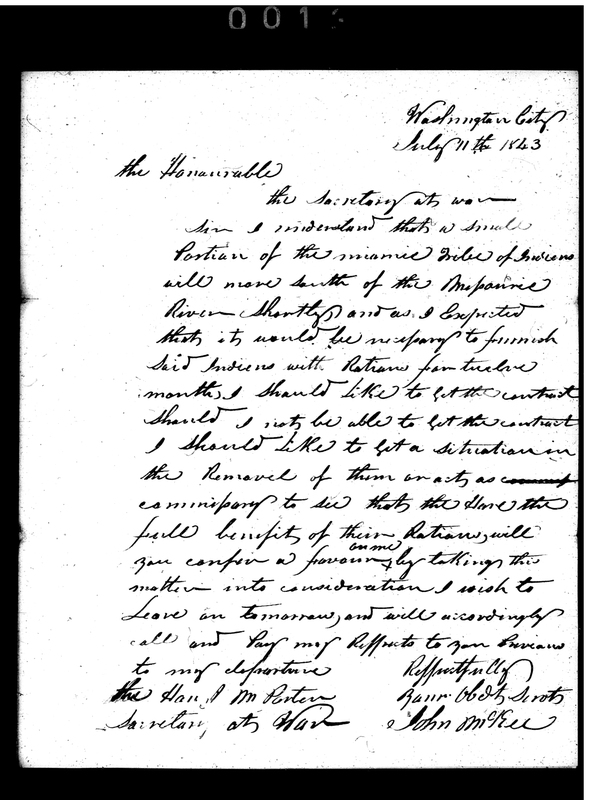 001
Washington City
July 11th 1843
the Honourable
the Secretary at war
Sir I understand that a small
Portion of the miamie Tribe of Indians
will move South of the Missourie
River Shortly and as I Expected
that it would be necessary to furnish
Said Indians with Rations for twelve
months, I should Like to get the contract
should I not be able to Get the contract
I should Like to get a situation in
the Removal of them or act as
commissary to see that the Have the
full benefit of their Rations, will
you confer a favour on me by taking this
matter into consideration I wish to
Leave on tomorrow, and will accordingly
call and Pay my Respects to you Previous
to my departure Respectfully
the Hon. J M Porter Your Obdt Servt
Secretary at War John McKee